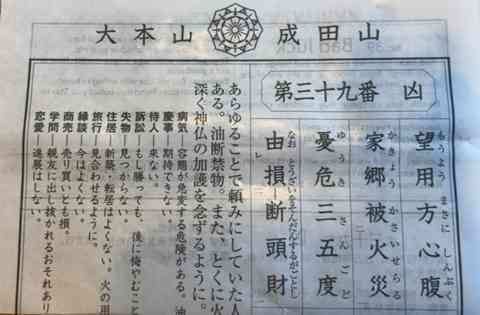 大本山 成田山
第三十九番 凶
望用方心腹
もうよう まさに しんぷく
家郷被火災
かきょう かさいせらる
憂危三五度
ゆうき さんごど
由損断頭財
なお とうざいをそんだんするがごとし
レ
あらゆることで頼みにしていた人
ある。油断禁物。また、とくに火
深く神仏の加護を念ずるように。
病気 容態が急変する危険がある。油
慶事 期待できない。
待人 来ない。
訴訟 もし勝っても、後に悔やむこと
失物 見つからない。
住居 新築・転居はよくない。火の用
旅行 見合わせるように。
縁談 今はよくない。
商売 売り買いとも損。
学問 親友に出し抜かれるおそれあり
恋愛 進展はしない。